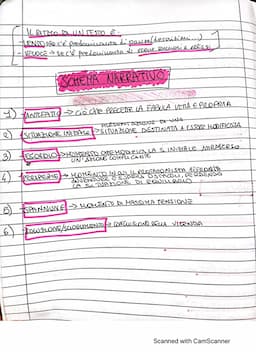 IL RITMO DI UN TESTO È:
LENTO se c'è predominanza di pause (descrittive...)
VELOCE → se c'è predominanza di
SCHEMA NARRATIVO
1) ANTEFATTO → CIÒ CHE PRECEDE LA FABULA VERA E PROPRIA
2) SITUAZIONE INIZIALE → PRESENTAZIONE DI UNA
SITUAZIONE DESTINATA A ESSERE MODIFICATA
3) ESORDIO → MOMENTO CHE MODIFICA LA S. INIZIALE ATTRAVERSO
UN'AZIONE COMPLICANTE
4) MOMENTO IN CUI IL PROTAGONISTA AFFRONTA
OSTACOLI,
LA SITUAZIONE DI EQUILIBRIO
5) SPANNUNG → MOMENTO DI MASSIMA TENSIONE
6) CONCLUSIONE DELLA VICENDA
Scanned with CamScanner